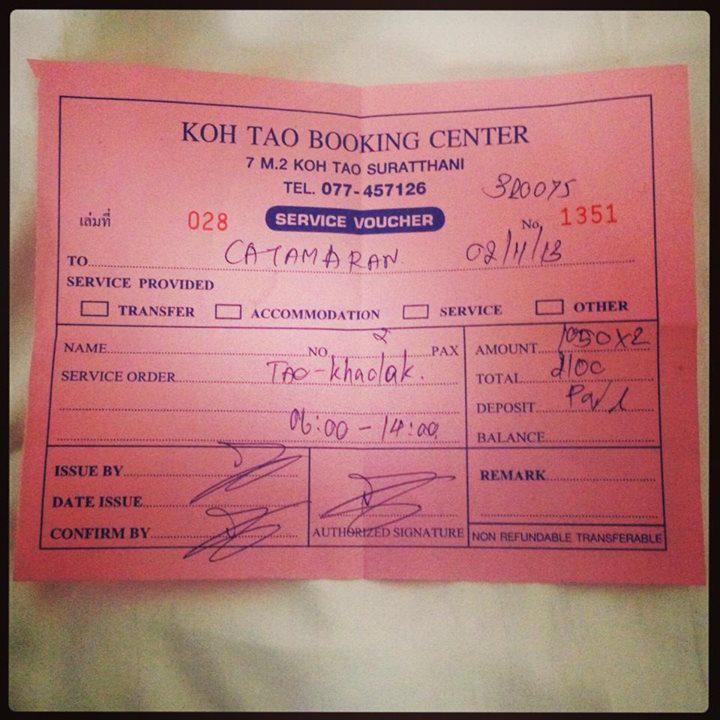 KOH TAO BOOKING CENTER
7 M.2 KOH TAO SURATTHANI
TEL. 077-457126
เล่มที่ 028 SERVICE VOUCHER No. 1351
TO CATAMARAN 02/11/13
SERVICE PROVIDED
TRANSFER ACCOMMODATION SERVICE OTHER
NAME NO 2 PAX AMOUNT 1050x2
SERVICE ORDER TAO-khaolak. TOTAL 2100
DEPOSIT Paid
06:00 - 14:00 BALANCE
ISSUE BY REMARK
DATE ISSUE
CONFIRM BY AUTHORIZED SIGNATURE NON REFUNDABLE TRANSFERABLE